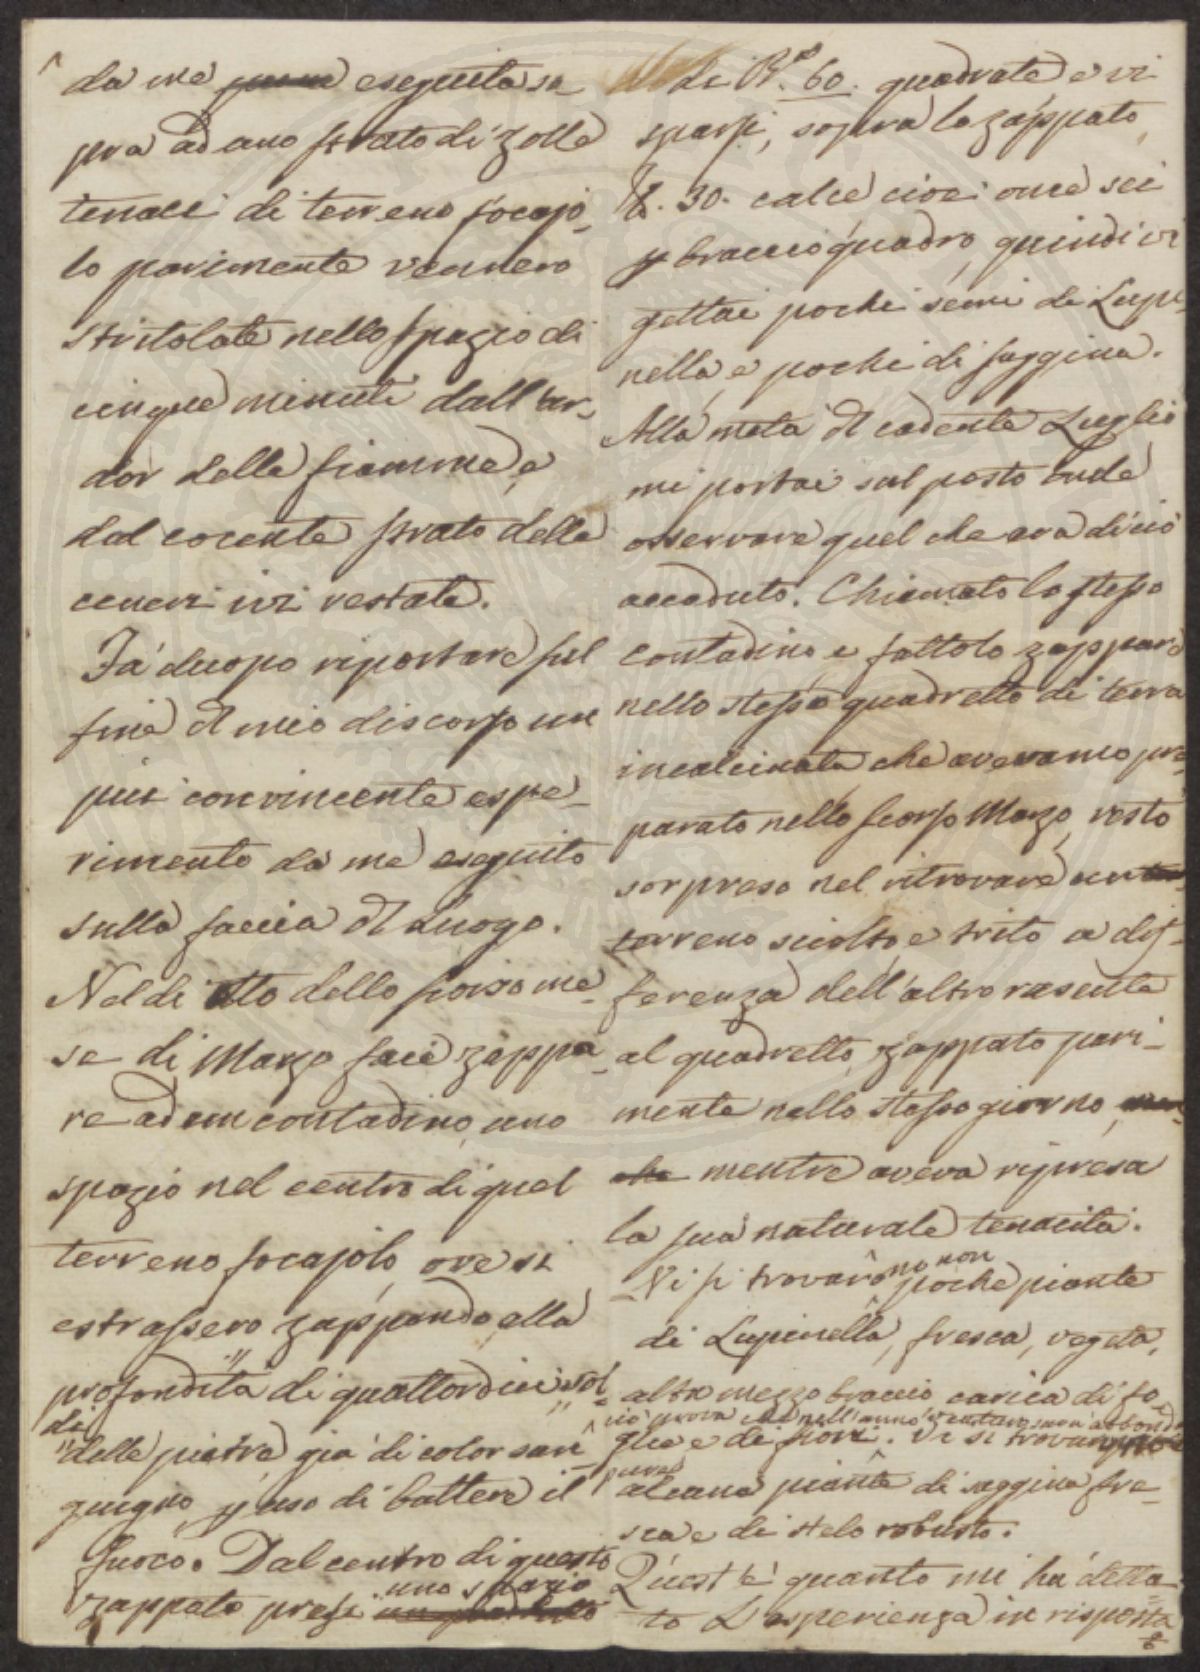 da me eseguita so
pra ad uno strato di zolle
tenaci di terreno focajo
lo parimente vennero
stritolate nello spazio di
cinque minuti dall'ar-
dor delle fiamme, e
dal cocente strato delle
ceneri ivi restate.
Fà duopo riportare sul
fine dl mio discorso un
più convincente espe-
rimento da me eseguito
sulla faccia dl Luogo.
Nel dì otto dello scorso me-
se di Marzo feci zappa-
re ad un contadino, uno
spazio nel centro di quel
terreno focajolo, ove si
estrassero, zappando, alla
profondità di quattordici sol-
di
delle pietre già di color san-
guigno, p uso di battere il
fuoco. Dal centro di questo
uno spazio
zappato presi un quadrato
di Ba. 60. quadrate, e vi
sparsi, sopra lo zappato,
30. calce cioè once sei
p braccio quadro, quindi vi
gettai pochi semi di Lupi-
nella, e pochi di saggina.
Alla metà dl cadente Luglio
mi portai sul posto onde
osservare quel che era di ciò
accaduto. Chiamato lo stesso
contadino e fattolo zappare
nello stesso quadretto di terra
incalcinata che avevamo pre-
parato nello scorso Marzo, resto
sorpreso nel ritrovare un
terreno sciolto, e trito a dif-
ferenza dell'altro rasente
al quadretto, zappato pari-
mente nello stesso giorno,
che mentre aveva ripresa
la sua naturale tenacità.
no non
Vi si trovaro poche piante
di Lupinella, fresca, vegeta,
alta mezzo braccio carica di fo-
ciò prova che nell'anno venturo sarà abbond
glie e di fiori. Vi si trovarono
pure
alcune piante di saggina fre-
sca e di stelo robusto.
Quest'è quanto mi ha detta-
to L'esperienza in risposta